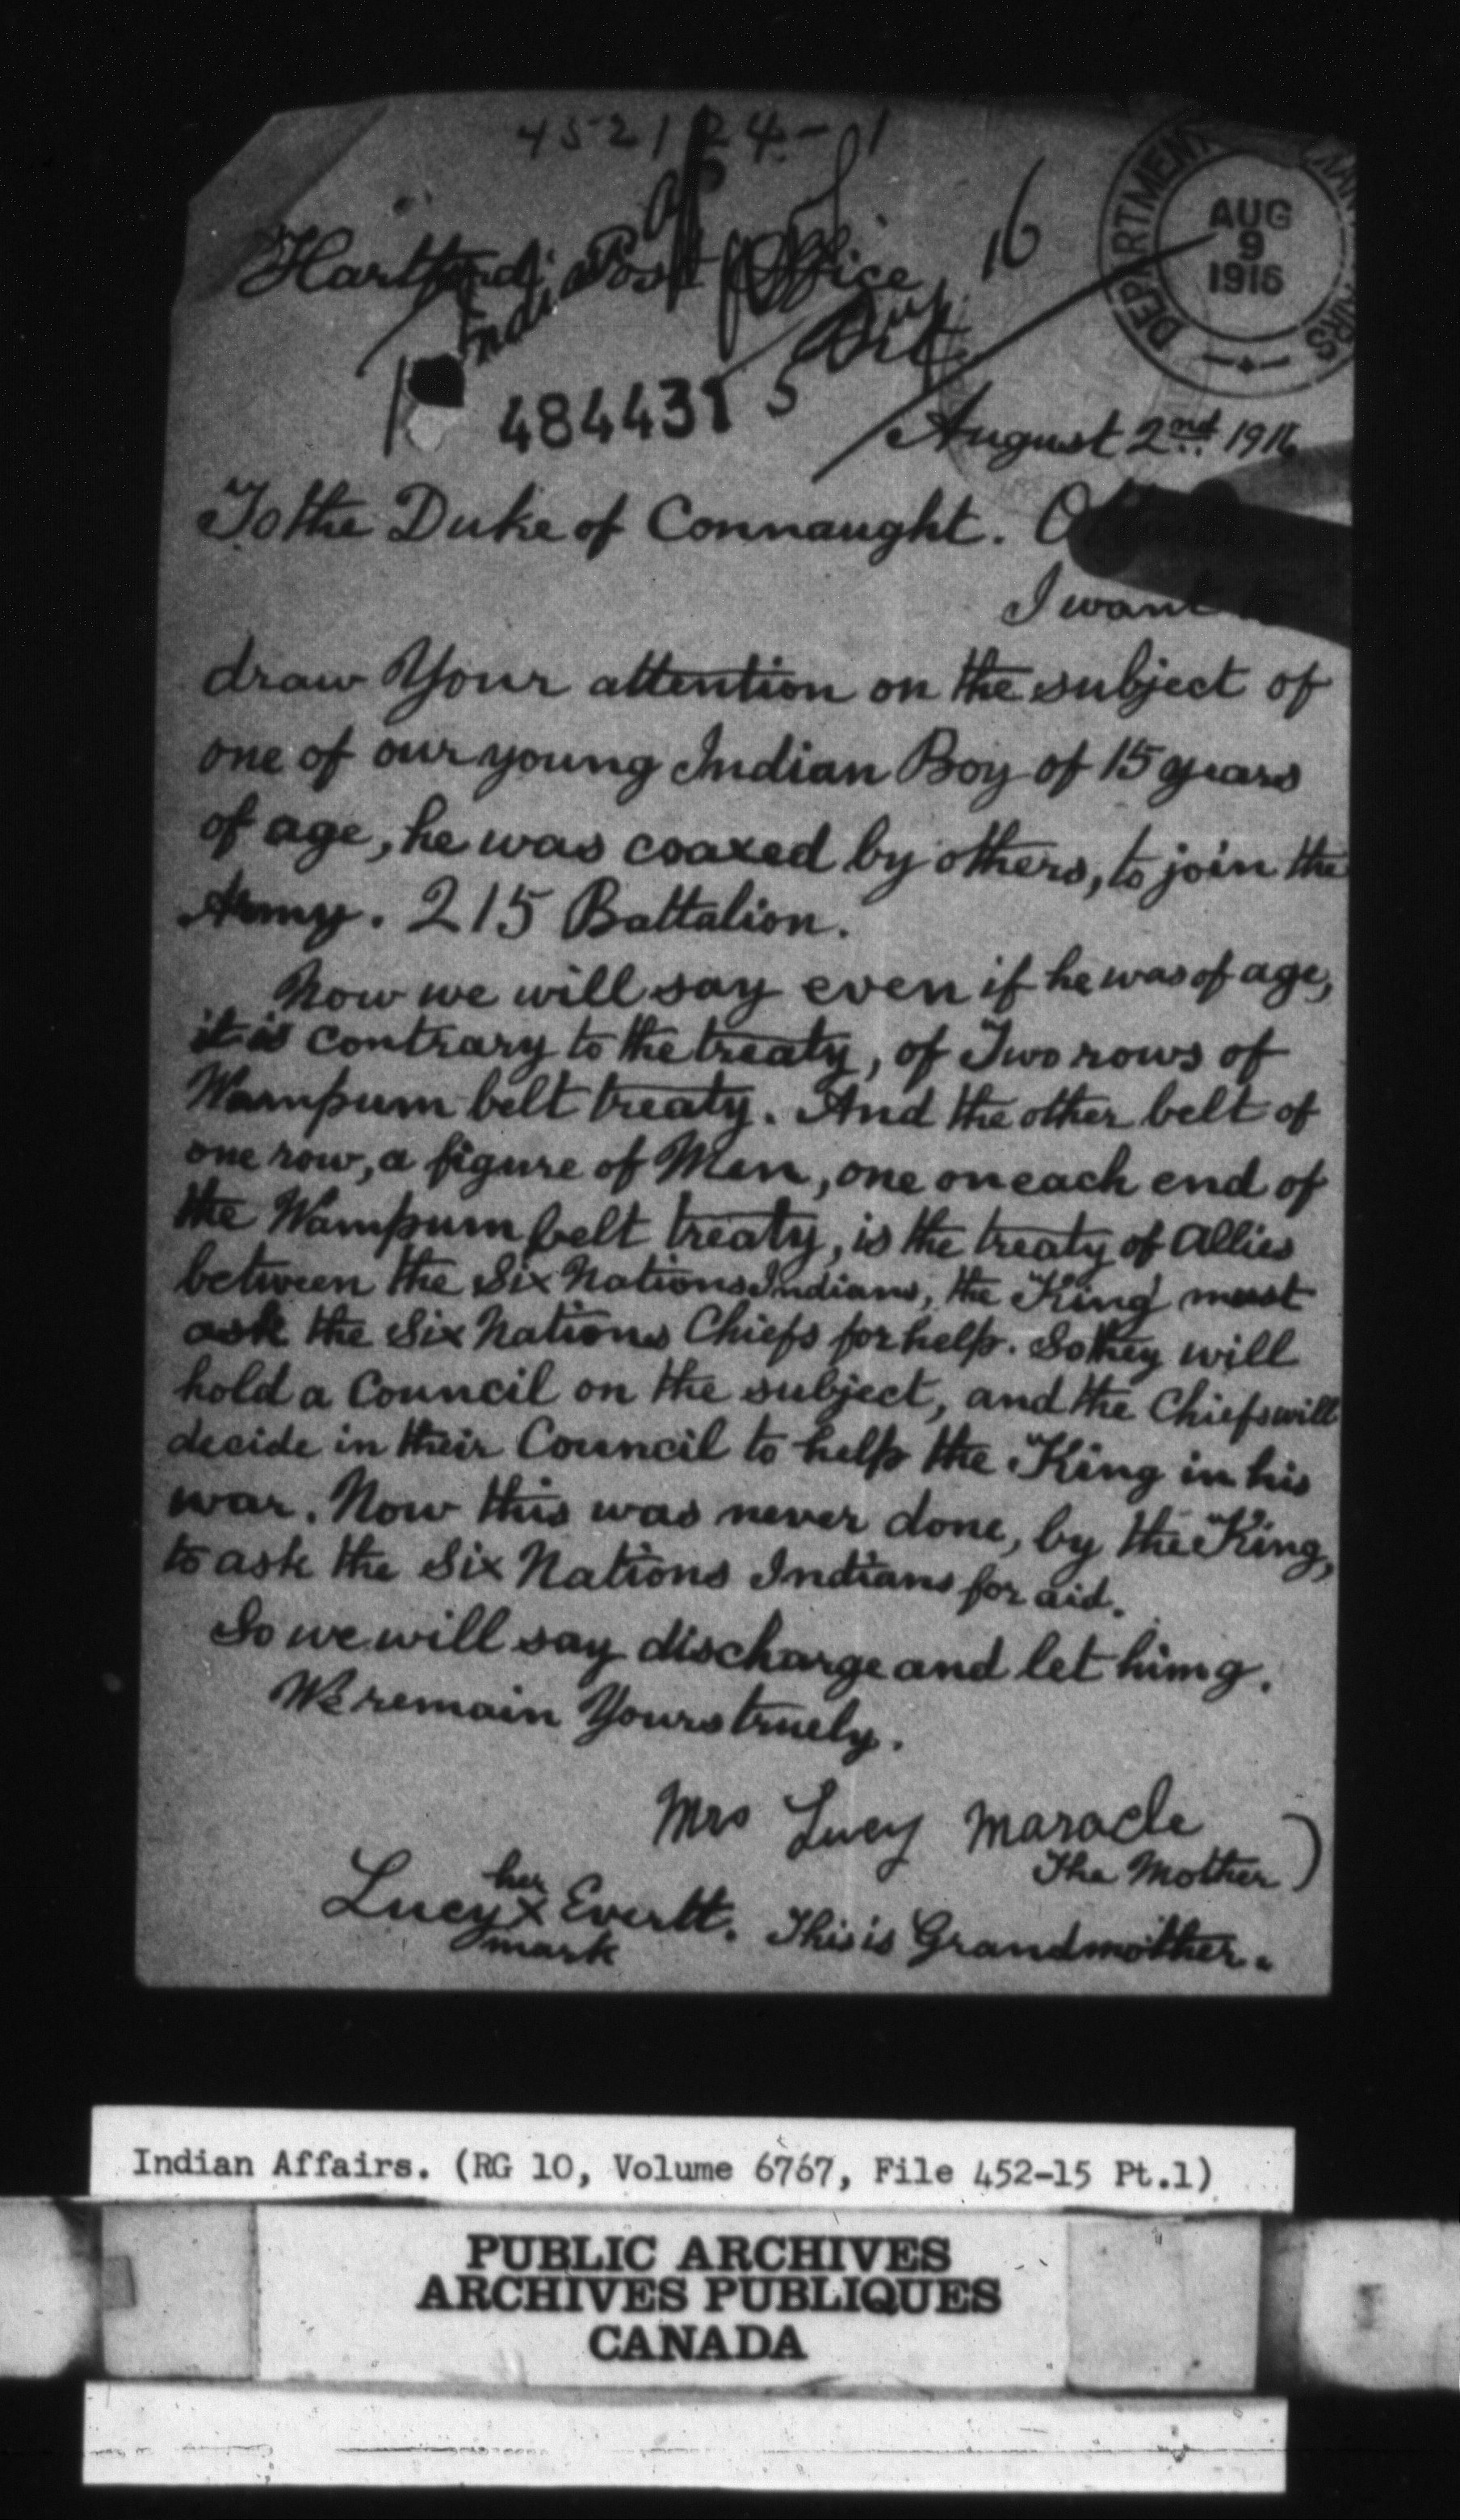 452124-1
Hartford, Post Office
16
Ont.
DEPARTMENT
AUG
9
1916
484431
August 2nd 1916
To the Duke of Connaught.
I want
draw Your attention on the subject of
one of our young Indian Boy of 15 years
of age, he was coaxed by others, to join the
Army. 215 Battalion.
Now we will say even if he was of age,
it is contrary to the treaty, of Two rows of
Wampum belt treaty. And the other belt of
one row, a figure of Men, one on each end of
the Wampum belt treaty, is the treaty of Allies
between the Six Nations Indians, the King must
ask the Six Nations Chiefs for help. So they will
hold a Council on the subject, and the Chiefs will
decide in their Council to help the King in his
war. Now this was never done, by the King,
to ask the Six Nations Indians for aid.
So we will say discharge and let him g.
We remain Yours truely.
Mrs Lucy Maracle
The Mother)
her
Lucy x Everett. This is Grandmother.
mark
Indian Affairs. (RG 10, Volume 6767, File 452-15 Pt.1)
PUBLIC ARCHIVES
ARCHIVES PUBLIQUES
CANADA